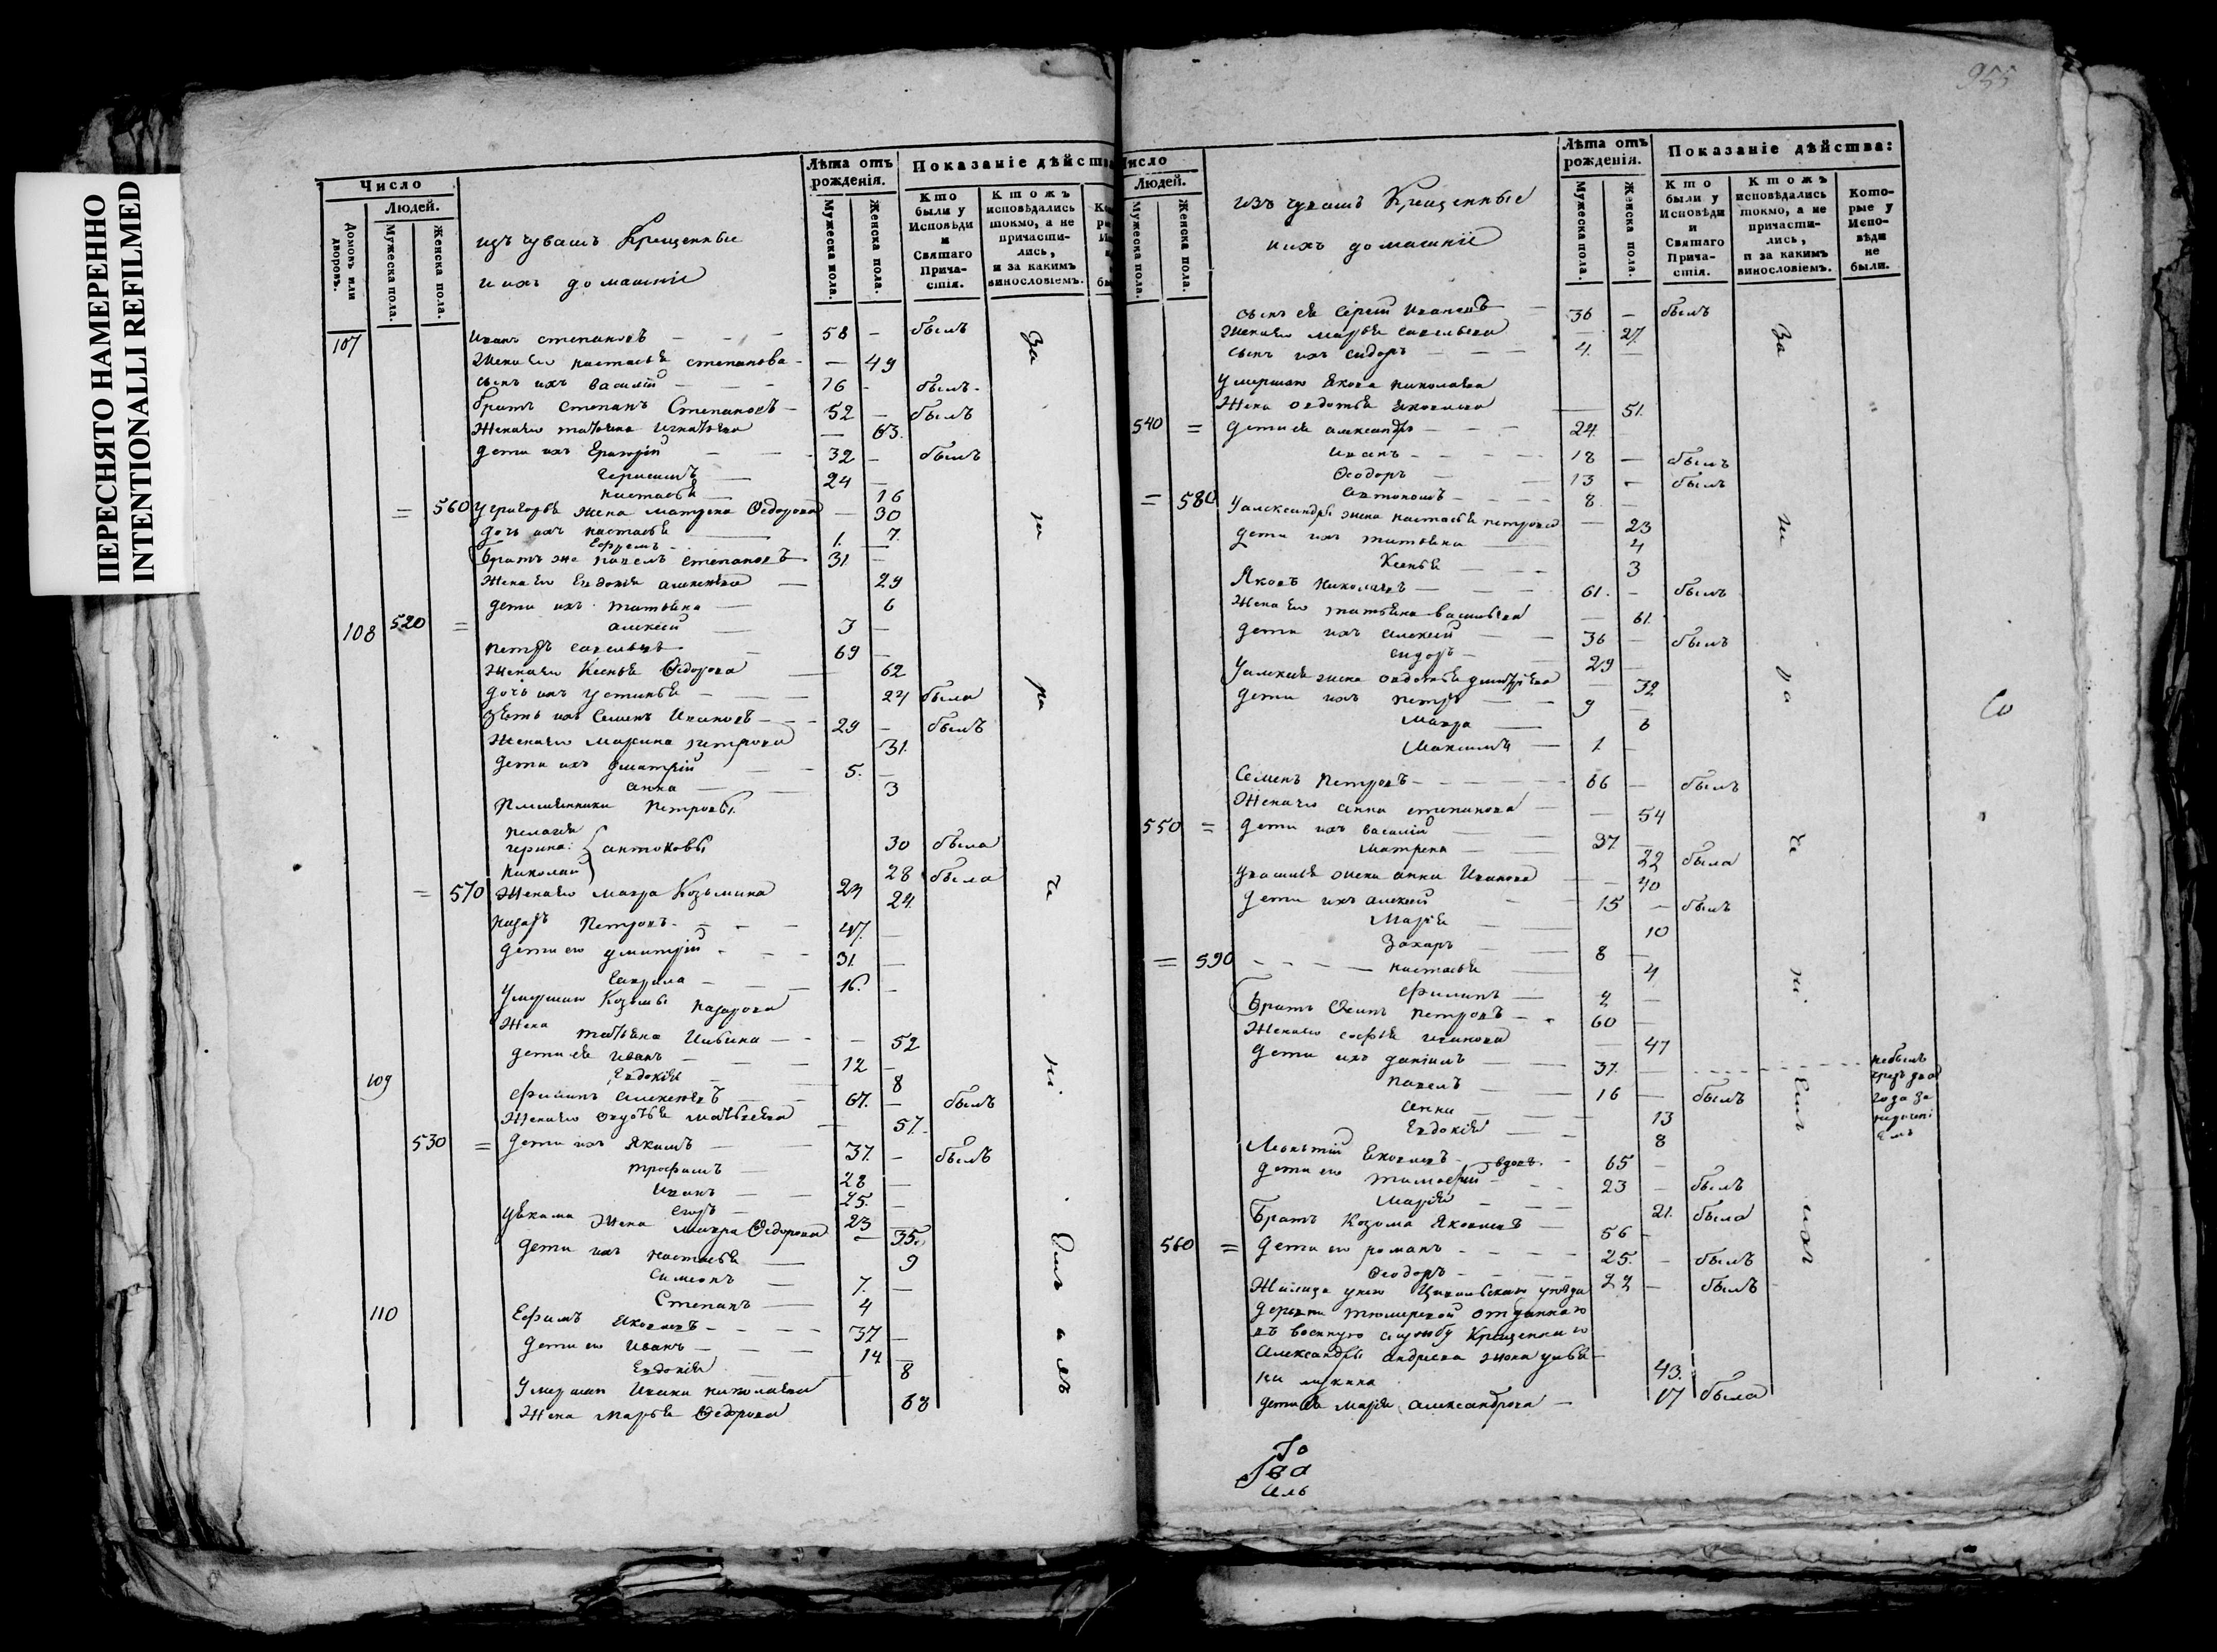 ПЕРЕСНЯТО НАМЕРЕННО
INTENTIONALLI REFILMED
Число
Людей.
Домовъ или дворовъ.
Мужеска пола.
Женска пола.
изъ чувашъ Крещенные
и ихъ домашніе
Лѣта отъ рожденія.
Мужеска пола.
Женска пола.
Показаніе дѣйства
Кто были у Исповѣди и Святаго Причастія.
Ктожъ исповѣдались токмо, а не причастились, и за какимъ винословіемъ.
107 Иванъ Степановъ 58 - былъ
Жена его Настасья Степанова - 49
сынъ ихъ Василій 16 - былъ
братъ Степанъ Степановъ 52 - былъ
Жена его Татьяна Игнатьева - 63.
дети ихъ Григорій 32 - былъ
Герасимъ 24 -
Настасья 16
= 560 У Григорья жена Матрена Ѳедорова - 30
дочь ихъ Настасья 7.
Ефремъ 1. -
Братъ же Павелъ Степановъ 31 -
Жена его Евдокія Алексеева 29
дети ихъ Татьяна 6
520 = Алексей 3 -
108 Петръ Савельевъ 69 -
Жена его Ксенья Ѳедорова 62
дочь ихъ Устинья 24 была
зеть ихъ Семенъ Ивановъ 29 - былъ
Жена его Марина Петрова 31.
дети ихъ Дмитрій 5. -
Анна 3
Племянники Петровы
Пелагея 30 была
Антоновы 28 была
Николай 23
= 570 Жена его Мавра Козьмина 24.
Назаръ Петровъ 47. -
дети его Дмитрій 31. -
Гаврила 16. -
Умершаго Козьмы Назарова
Жена Татьяна - 52
дети ея Иванъ 12 -
Евдокія 8
109 Филипъ Алексеевъ 67. - былъ
Жена его Матвеева 57.
530 = дети ихъ Якимъ 37. - былъ
Трофимъ 28 -
Иванъ 25. -
Егоръ 23 -
У Якима жена Мавра Ѳедорова - 35.
дети ихъ Настасья 9
Симеонъ 7. -
Степанъ 4
110 Ефимъ Яковлевъ 37 -
дети его Иванъ 14 -
Евдокія 8
Умершаго Ивана Николаева
Жена Марья Ѳедорова 63
За ни ра че ні емъ
955
Число
Людей.
Мужеска пола.
Женска пола.
изъ чувашъ Крещенные
и ихъ домашніе
Лѣта отъ рожденія.
Мужеска пола.
Женска пола.
Показаніе дѣйства:
Кто были у Исповѣди и Святаго Причастія.
Ктожъ исповѣдались токмо, а не причастились, и за какимъ винословіемъ.
Которые у Исповѣди не были.
сынъ ея Сергей Ивановъ 36 - былъ
Жена его Марья Савельева - 27.
сынъ ихъ Сидоръ 4. -
Умершаго Якова Николаева
Жена Овдотья Яковлева - 51.
540 = дети ея Александръ 24. -
Иванъ 18 - былъ
Ѳеодоръ 13 - былъ
Автономъ 8. -
= 580 У Александры жена Настасья Петрова - 23
дети ихъ Татьяна 4
Ксенья 3
Яковъ Николаевъ 61. - былъ
Жена его Татьяна Васильева - 61.
дети ихъ Алексей 36 - былъ
Сидоръ 29 -
У Алексея жена Овдотья Дмитрѣева - 32
дети ихъ Петръ 9 -
Мавра 6
Максимъ 1. -
Семенъ Петровъ 66 - былъ
Жена его Анна Степанова - 54
550 = дети ихъ Василій 37. -
Матрена 22 была
У Василья жена Анна Иванова - 40
дети ихъ Алексей 15 - былъ
Марія 10
Захаръ 8 -
= 590 Настасья 4
Филипъ 2 -
Братъ Осипъ Петровъ 60 -
Жена его Софья Иванова - 47
дети ихъ Даніилъ 37. - небылъ чрезъ два года за нерачені емъ
Павелъ 16 - былъ
Анна 13
Евдокія 8
Леонтій Яковлевъ вдовъ. 65 -
дети его Тимофей 23 - былъ
Марія 21. была
Братъ Козьма Яковлевъ 56 -
560 = дети его Романъ 25. - былъ
Ѳеодоръ 22 - былъ
Жилица у него Цивильскаго уезда
деревни Тюмерской отданнаго
въ военную службу Крещеннаго
Александры Андреева жена
43.
дети ея Марія Александрова 17 была
За ни ра че ні емъ
Го